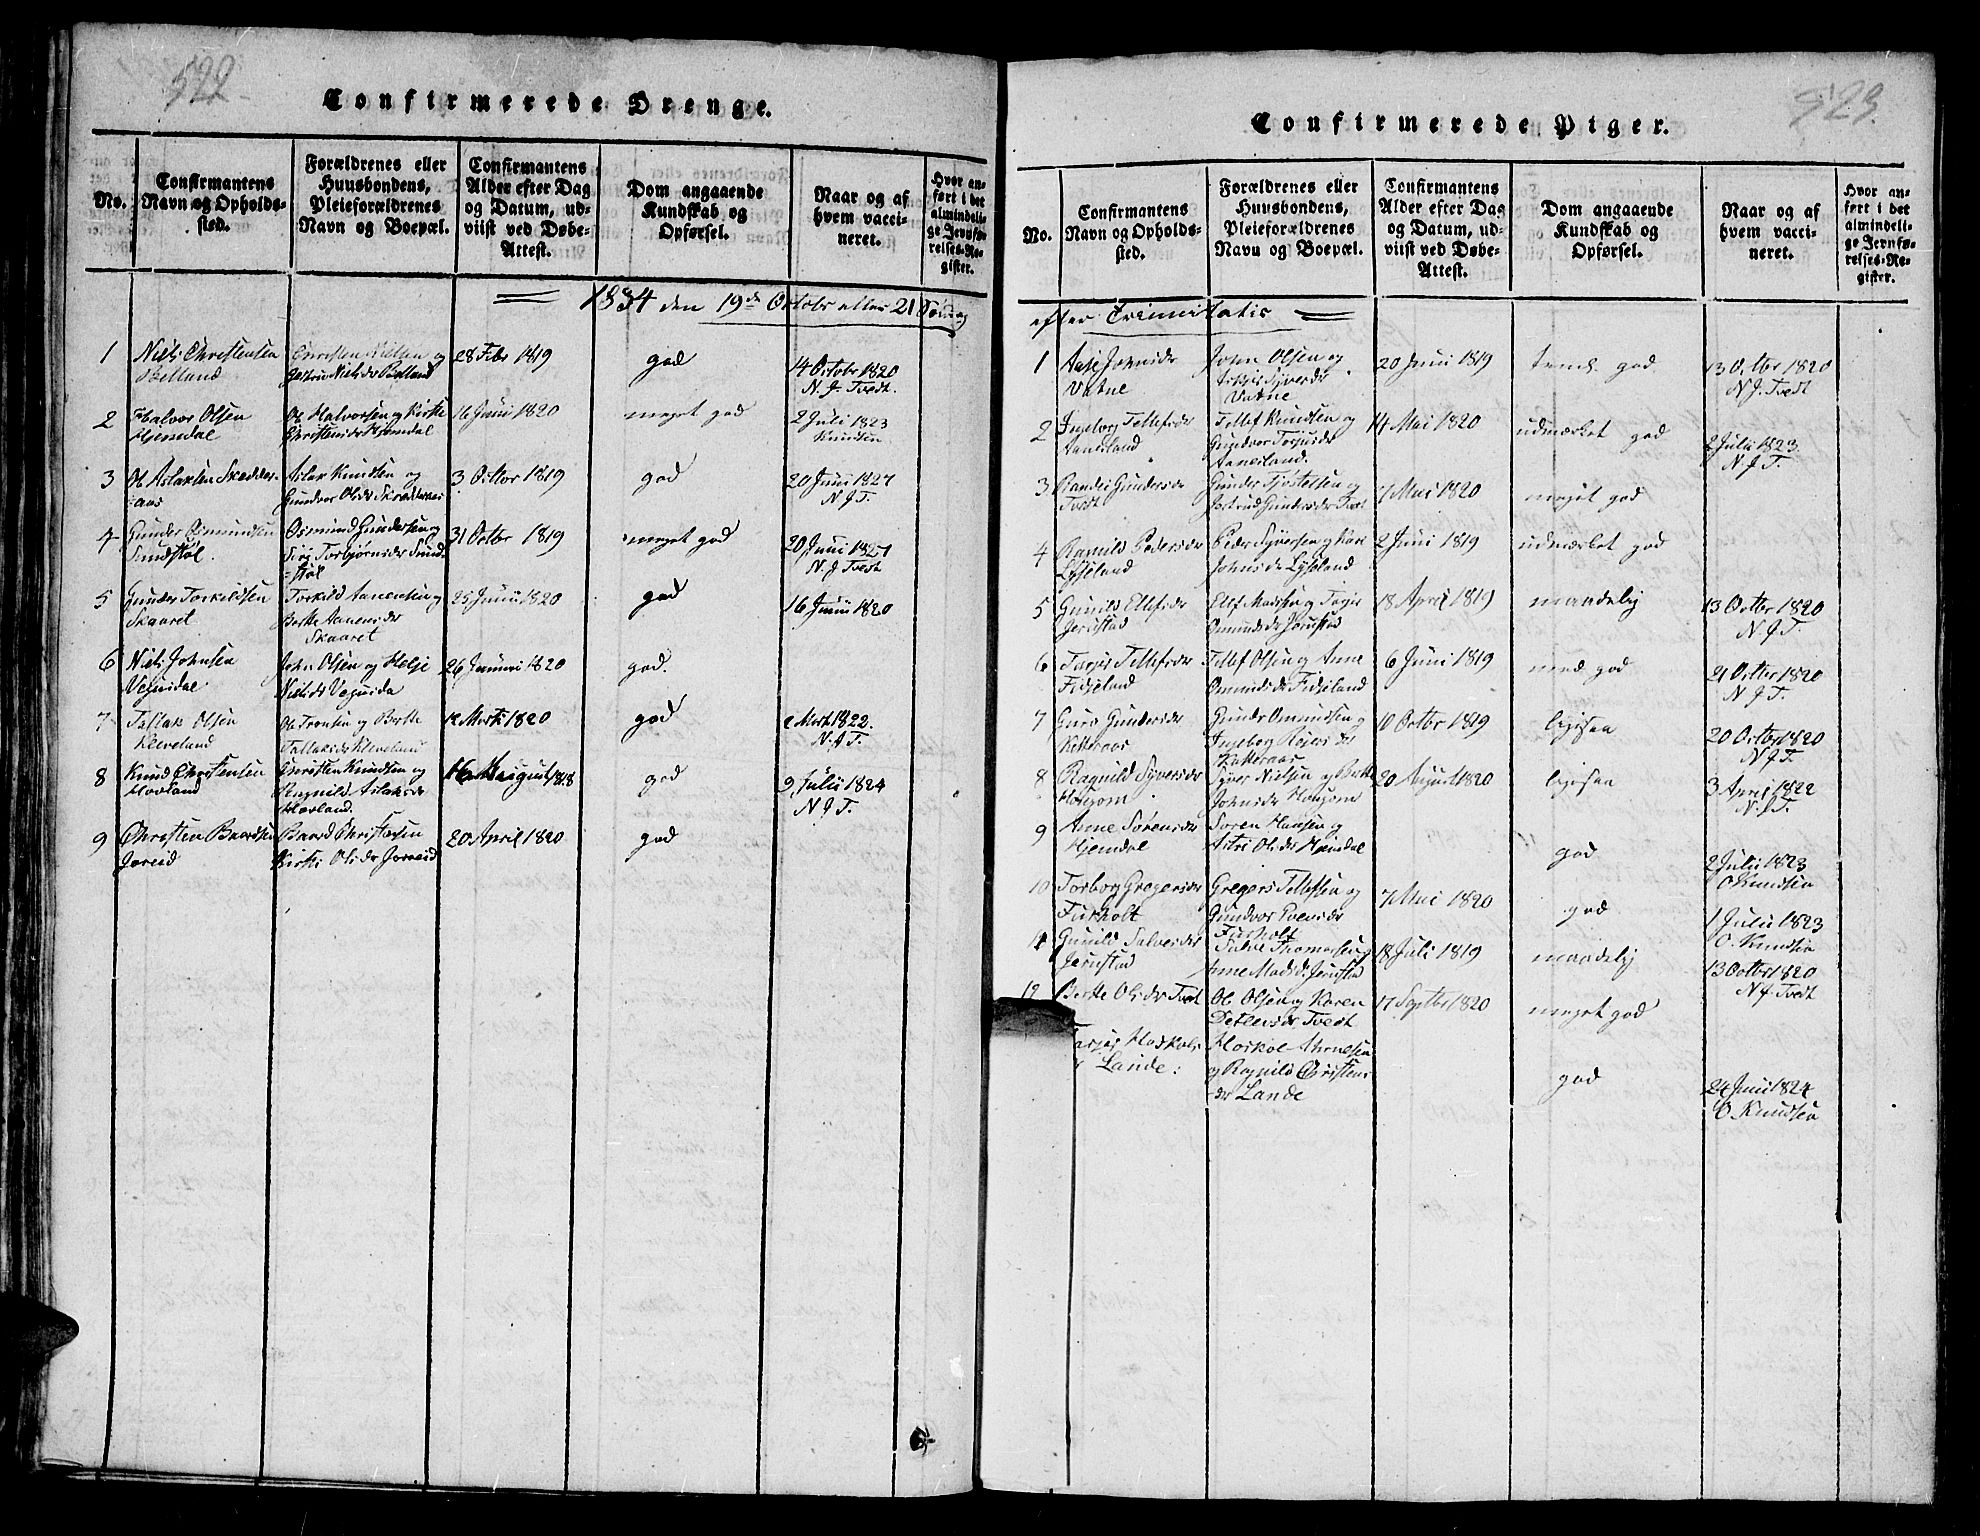 522
Confirmerede Drenge.
No.
Confirmantens
Navn og Opholds-
sted.
Forældrenes eller
Huusbondens,
Pleieforældrenes
Navn og Boepæl.
Confirmantens
Alder efter Dag
og Datum, ud-
viist ved Døbe-
Attest.
Dom angaaende
Kundskab og
Opførsel.
Naar og af
hvem vacci-
neret.
Hvor an-
ført i det
almindeli-
ge Jevnfø-
relses-Re-
gister.
1834 den 19de Octobr eller 21 Søndag
1
Niels Christensen
Belland
Christen Nielsen og
Niels dr Belland
28 Febr 1819
god
14 Octobr 1820
N. J. Tvedt.
2
Halvor Olsen
Hjemdal
Ole Halvorsen og Kirste
Christens dr Hjemdal
16 Junii 1820
meget god
2 Juli 1823
Knudsen
3
Ole Aslaksen Skedder-
aas
Aslak Knudsen og
Gundvor Ols dr
3 Octbr 1819
god
20 Junii 1827
N. J. T.
4
Gunder Osmundsen
Sundstøl
Osmund Gundersen og
Siri Torbjørns dr Sund-
støl
31 Octbr 1819
meget god
20 Junii 1827
N. J. Tvedt
5
Gunder Torkildsen
Skaaret
Torkild Aanensen og
Berthe Aanens dr
Skaaret
25 Junii 1820
god
16 Junii 1820
6
Niels Johnsen
Vegusdal
John Olsen og Helje
Niels dr Vegusda
26 Januari 1820
god.
7
Tallak Olsen
Kleveland
Ole Tronsen og Berthe
Tallaks dr Kleveland
12 Marts 1820
god
2 Mart 1822.
N. J. T.
8
Knud Christensen
Hovland
Christen Knudsen og
Ragnild Aslaks dr
Hovland.
August 1818
god
9 Julii 1824
N J T.
9
Christen Baardsen
Joreid
Baard Christensen
Kirsti Ols dr Joreid
20 April 1820
god
523
Confirmerede Piger.
No.
Confirmantens
Navn og Opholds-
sted.
Forældrenes eller
Huusbondens,
Pleieforældrenes
Navn og Boepæl.
Confirmantens
Alder efter Dag
og Datum, ud-
viist ved Døbe-
Attest.
Dom angaaende
Kundskab og
Opførsel.
Naar og af
hvem vacci-
neret.
Hvor an-
ført i det
almindeli-
ge Jevnfø-
relses-Re-
gister.
efter Trinitatis
1
Aase Johns dr
Vatne
John Olsen og
Syvers dr
Vatne
20 Juni 1819
temk god
13 Octbr 1820
N J. Tvedt
2
Ingeborg Tellefs dr
Aanesland
Tellef Knudsen og
Gundvor Torjus dr
Aanesland.
14 Mai 1820
udmærket god
2 Julii 1823
N. J T.
3
Randi Gunders dr
Tvedt
Gunder Tjøstelsen og
Jortrud Gunders dr Tvedt
7 Mai 1820
meget god
4
Ragnild Peders dr
Lyseland
Peder Syversen og Kari
Johns dr Lyseland
2 Juni 1819
udmærket god
5
Gunild Ellefs dr
Jerustad
Ellef Madsen og Torjer
Osmunds dr Jerustad
18 April 1819
maadelig
13 Octbr 1820
N. J T.
6
Torjer Tellefs dr
Fidjeland
Tellef Olsen og Anne
Omunds dr Fidjeland
6 Juni 1819
god
21 Octbr 1820
N. J T.
7
Guro Gunders dr
Ketteraas
Gunder Omundsen og
Ingeborg Rejers dr
Ketteraas
10 Octbr 1819
ligesaa
20 Octbr 1820
N J T.
8
Ragnild Syvers dr
Hougom
Syver Nielsen og Berthe
Johns dr Hougom
20 August 1820
ligesaa
3 April 1822
N. J T.
9
Anne Sørens dr
Hjemdal
Søren Hansen og
Astri Ols dr Hjemdal
god
2 Julii 1823
O Knudsen
10
Torborg Gregers dr
Furholt
Gregers Tellefsen og
Gundvor Evens dr
Furholt
7 Mai 1820
god
1 Julii 1823
O. Knudsen
11
Gunild Salves dr
Jerustad
Salve Thomassen og
Anne Mads dr Jerustad
18 Juli 1819
maadelig
13 Octbr 1820
N J. Tvedt
12
Berthe Ols dr Tvedt
Ole Olsen og Karen
Detlevs dr Tvedt
17 Septbr 1820
meget god
Hoskols
Lande:
Hoskol Arnesen
og Ragnild Christens
dr Lande
god
24 Junii 1824
O. Knudsen